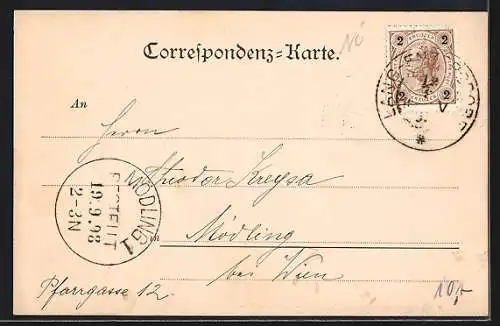 Nö
Correspondenz-Karte.
2 2
2 2
LANG-ENZERSDORF
An
Herrn
Theodor Kreysa
MÖDLING 1
BESTELLT
19.9.98
2-3N
Mödling
bei Wien
Pfarrgasse 12.
10,-